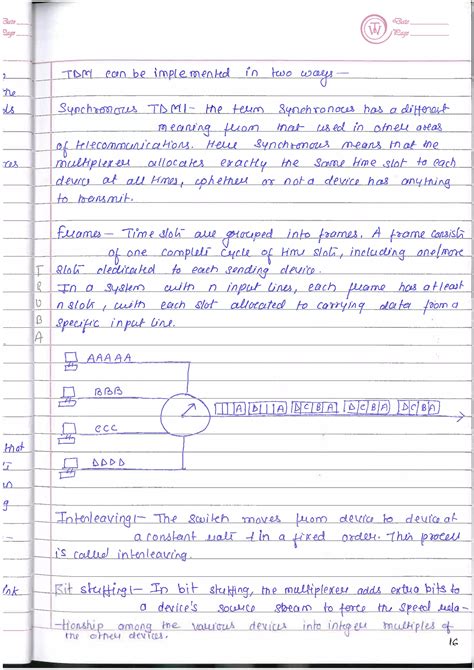 Date
Page
TDM can be implemented in two ways—
Synchronous TDM:- the term synchronous has a different
meaning from that used in other areas
of telecommunications. Here synchronous means that the
multiplexer allocates exactly the same time slot to each
device at all times, whether or not a device has anything
to transmit.
Frames- Time slots are grouped into frames. A frame consists
of one complete cycle of time slots, including one/more
slots dedicated to each sending device.
In a system with n input lines, each frame has atleast
n slots, with each slot allocated to carrying data from a
specific input line.
AAAAA
BBB
CCC
DDDD
A D A D C B A D C B A D C B A
Interleaving:- The switch moves from device to device at
a constant rate & in a fixed order. This process
is called interleaving.
Bit stuffing:- In bit stuffing, the multiplexer adds extra bits to
a device's source stream to force the speed rela-
tionship among the various devices into integer multiples of
the other devices.
16